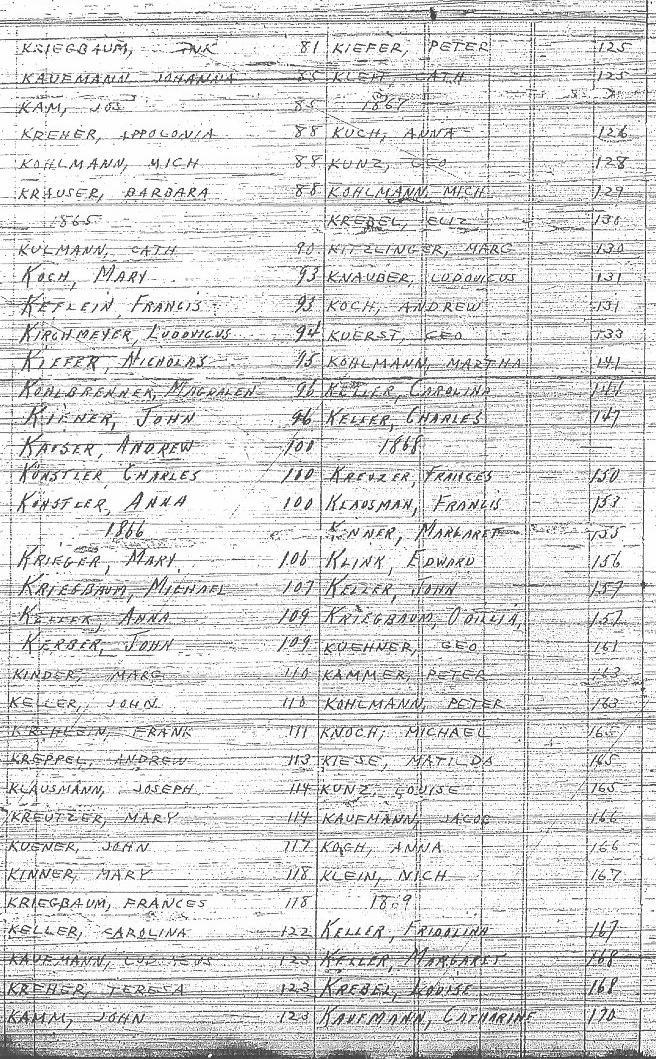 KRIEGBAUM, 81
KAUFMANN, JOHANNA 85
KAM, JOS 85
KREHER, APPOLONIA 88
KOHLMANN, MICH 88
KRAUSER, BARBARA 88
1865
KULMANN, CATH 90
KOCH, MARY 93
KETLEIN, FRANCIS 93
KIRCHMEYER, LUDOVICUS 94
KIEFER, NICHOLAS 95
KOHLBRENNER, MAGDALEN 96
KIENER, JOHN 96
KAISER, ANDREW 100
KÜNSTLER, CHARLES 100
KÜNSTLER, ANNA 100
1866
KRIEGER, MARY 106
KRIEGBAUM, MICHAEL 107
KELLER, ANNA 109
KERBER, JOHN 109
KINDER, MARG 110
KELLER, JOHN 110
KIRCHLEIN, FRANK 111
KREPPEL, ANDREW 113
KLAUSMANN, JOSEPH 114
KREUTZER, MARY 114
KUENER, JOHN 117
KINNER, MARY 118
KRIEGBAUM, FRANCES 118
KELLER, CAROLINA 122
KAUFMANN, 123
KREHER, TERESA 123
KAMM, JOHN 123
KIEFER, PETER 125
CATH 125
1867
KUCH, ANNA 126
KUNZ, GEO 128
KOHLMANN, MICH 129
KREBEL, ELIZ 130
KITZLINGER, MARG 130
KNAUBER, LUDOVICUS 131
KOCH, ANDREW 131
KUERST, GEO 133
KOHLMANN, MARTHA 141
KELLER, CAROLINA 144
KELLER, CHARLES 147
1868
KREUZER, FRANCES 150
KLAUSMAN, FRANCIS 153
KINNER, MARGARET 155
KLINK, EDWARD 156
KELLER, JOHN 157
KRIEGBAUM, ODILLIA, 157
KUEHNER, GEO 161
KAMMER, PETER 163
KOHLMANN, PETER 163
KNOCH, MICHAEL 165
KIESE, MATILDA 165
KUNZ, LOUISE 165
KAUFMANN, JACOB 166
KOCH, ANNA 166
KLEIN, NICH 167
1869
KELLER, FRIDOLINA 167
KELLER, MARGARET 168
KREBEL, LOUISE 168
KAUFMANN, CATHARINE 170